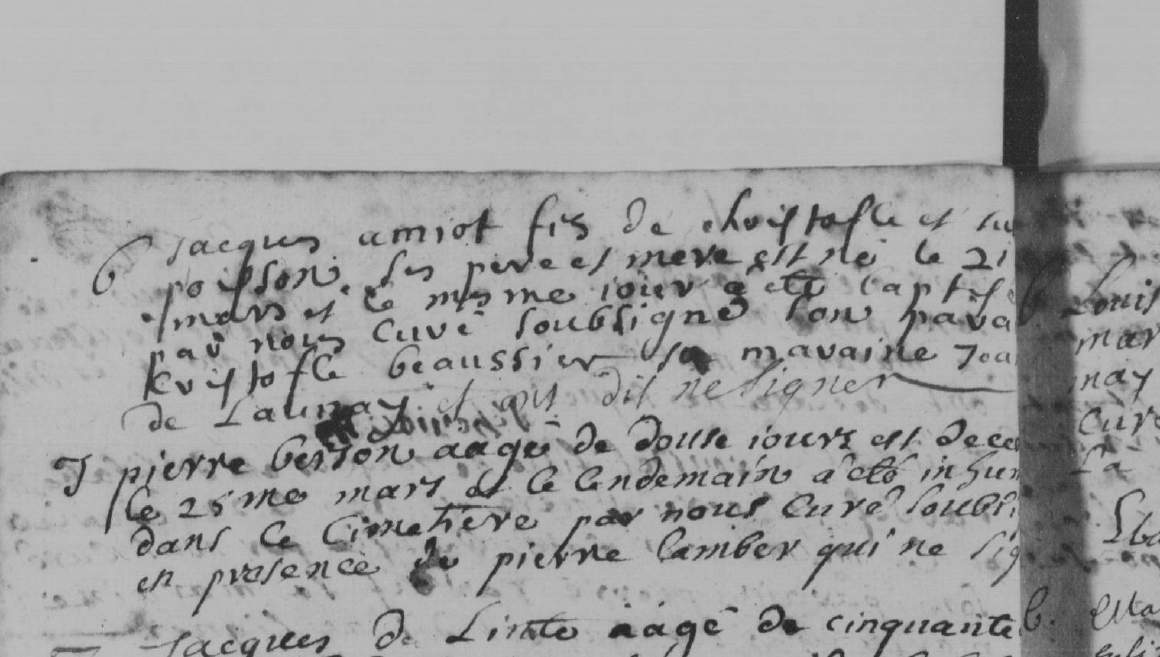 b Jacques amiot fis de christofle et
poisson. ses pere et mere est né le 21
mars et le mesme iour a eté baptisé
par nous curé soubsigné son para
kristofle beaussier sa maraine Jea
de Launay et ont dit ne signer
J pierre berson aagé de douse iours est dece
le 25me mars et le lendemain a eté inhum
dans le Cimetiere par nous Curé soubsi
en presence de pierre lamber qui ne sig
Jacques de aagé de cinquante
b. Louis
mar
nay
Cure
La
b.